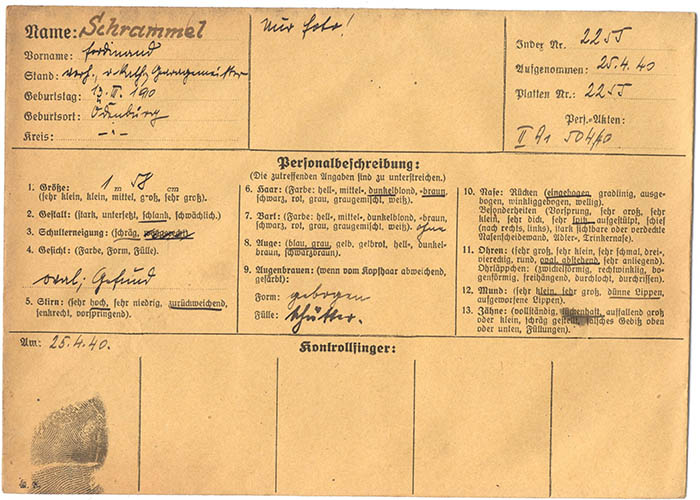 Name: Schrammel
Vorname: Ferdinand
Stand: verh., r. kath., Garagemeister
Geburtstag: 13. II. 190
Geburtsort: Ödenburg
Kreis: -.-
Nur Foto!
Index Nr. 2255
Aufgenommen: 25.4.40
Platten Nr.: 2255
Pers.-Akten:
II A1 504/40
Personalbeschreibung:
(Die zutreffenden Angaben sind zu unterstreichen.)
1. Größe: 1 m 58 cm
(sehr klein, klein, mittel, groß, sehr groß).
2. Gestalt: (stark, untersetzt, schlank, schwächlich).
3. Schulterneigung: (schräg,
4. Gesicht: (Farbe, Form, Fülle).
oval; Gesund
5. Stirn: (sehr hoch, sehr niedrig, zurückweichend,
senkrecht, vorspringend).
6. Haar: (Farbe: hell-, mittel-, dunkelblond, -braun,
schwarz, rot, grau, graugemischt, weiß).
7. Bart: (Farbe: hell-, mittel-, dunkelblond, -braun,
schwarz, rot, grau, graugemischt, weiß). ohne
8. Auge: (blau, grau, gelb, gelbrot, hell-, dunkel-
braun, schwarzbraun).
9. Augenbrauen: (wenn vom Kopfhaar abweichend,
gefärbt):
Form: gebogen
Fülle: schütter.
10. Nase: Rücken (eingebogen, gradlinig, ausge-
bogen, winkliggebogen, wellig).
Besonderheiten (Vorsprung, sehr groß, sehr
klein, sehr dick, sehr spitz, aufgestülpt, schief
(nach rechts, links), stark sichtbare oder verdeckte
Nasenscheidewand, Adler-, Trinkernase).
11. Ohren: (sehr groß, sehr klein, sehr schmal, drei-,
viereckig, rund, oval, abstehend, sehr anliegend).
Ohrläppchen: (zwickelförmig, rechtwinklig, bo-
genförmig, freihängend, durchlocht, durchrissen).
12. Mund: (sehr klein, sehr groß, dünne Lippen,
aufgeworfene Lippen).
13. Zähne: (vollständig, lückenhaft, auffallend groß
oder klein, schräg gestellt, falsches Gebiß oben
oder unten, Füllungen).
Am: 25.4.40.
Kontrollfinger: